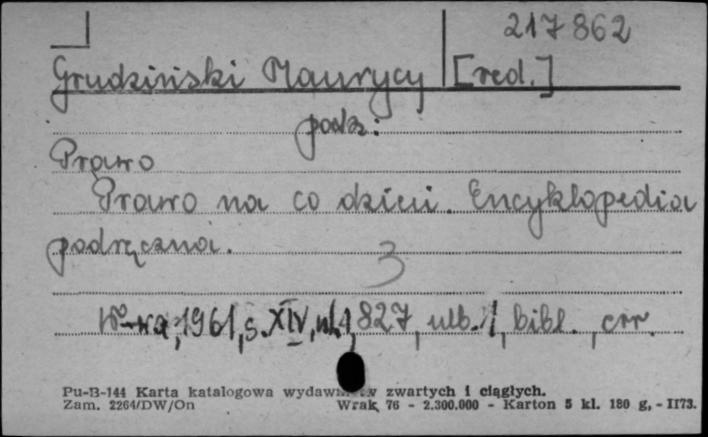 217862
Grudziński Maurycy [red.]
podz:
Prawo
Prawo na co dzień. Encyklopedia
podręczna.
3
W-wa, 1961, s. XIV, nl. 1, 827, ulb. 1, bibl., err.
Pu-B-144 Karta katalogowa wydawnictw zwartych i ciągłych.
Zam. 2264/DW/On Wrak, 76 - 2.300.000 - Karton 5 kl. 180 g, - II73.